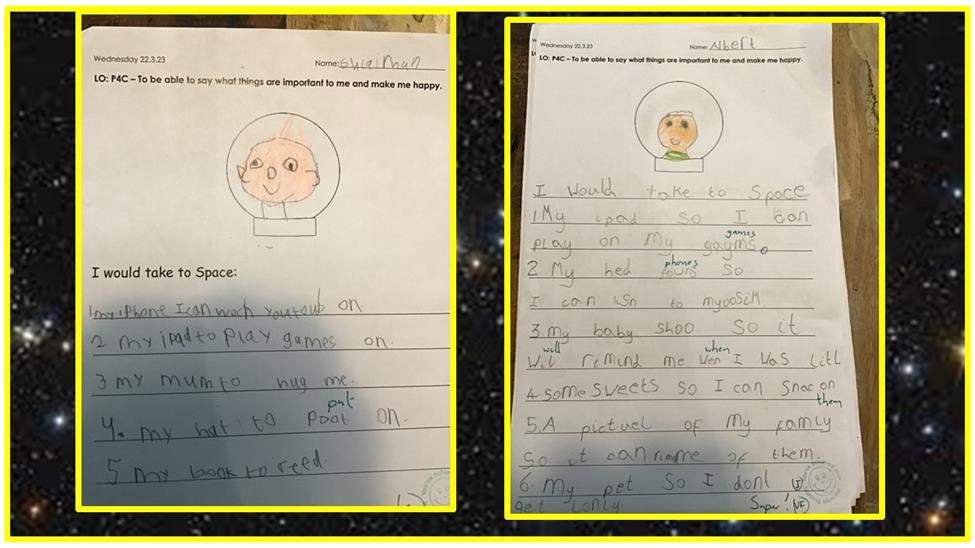 Wednesday 22.3.23
Name: Sulaiman
LO: P4C – To be able to say what things are important to me and make me happy.
I would take to Space:
1 my iPhone I can woch youtoub on.
2 my ipad to play games on.
3 my mum to hug me.
put
4. my hat to poot on.
5 my book to reed.
Wednesday 22.3.23
Name: Albert
LO: P4C – To be able to say what things are important to me and make me happy.
I would take to Space
1. My ipad so I can
games
play on My gayms.
phones
2. My hed so
I can lisn to myoosik
3. my baby shoo so it
will when
Wil rimind me wen I was litl
4. some sweets so I can snac on
them
5. A pictuel of My famly
So it can me of them.
6. My pet so I dont (I)
get lonly. Super! (VF)